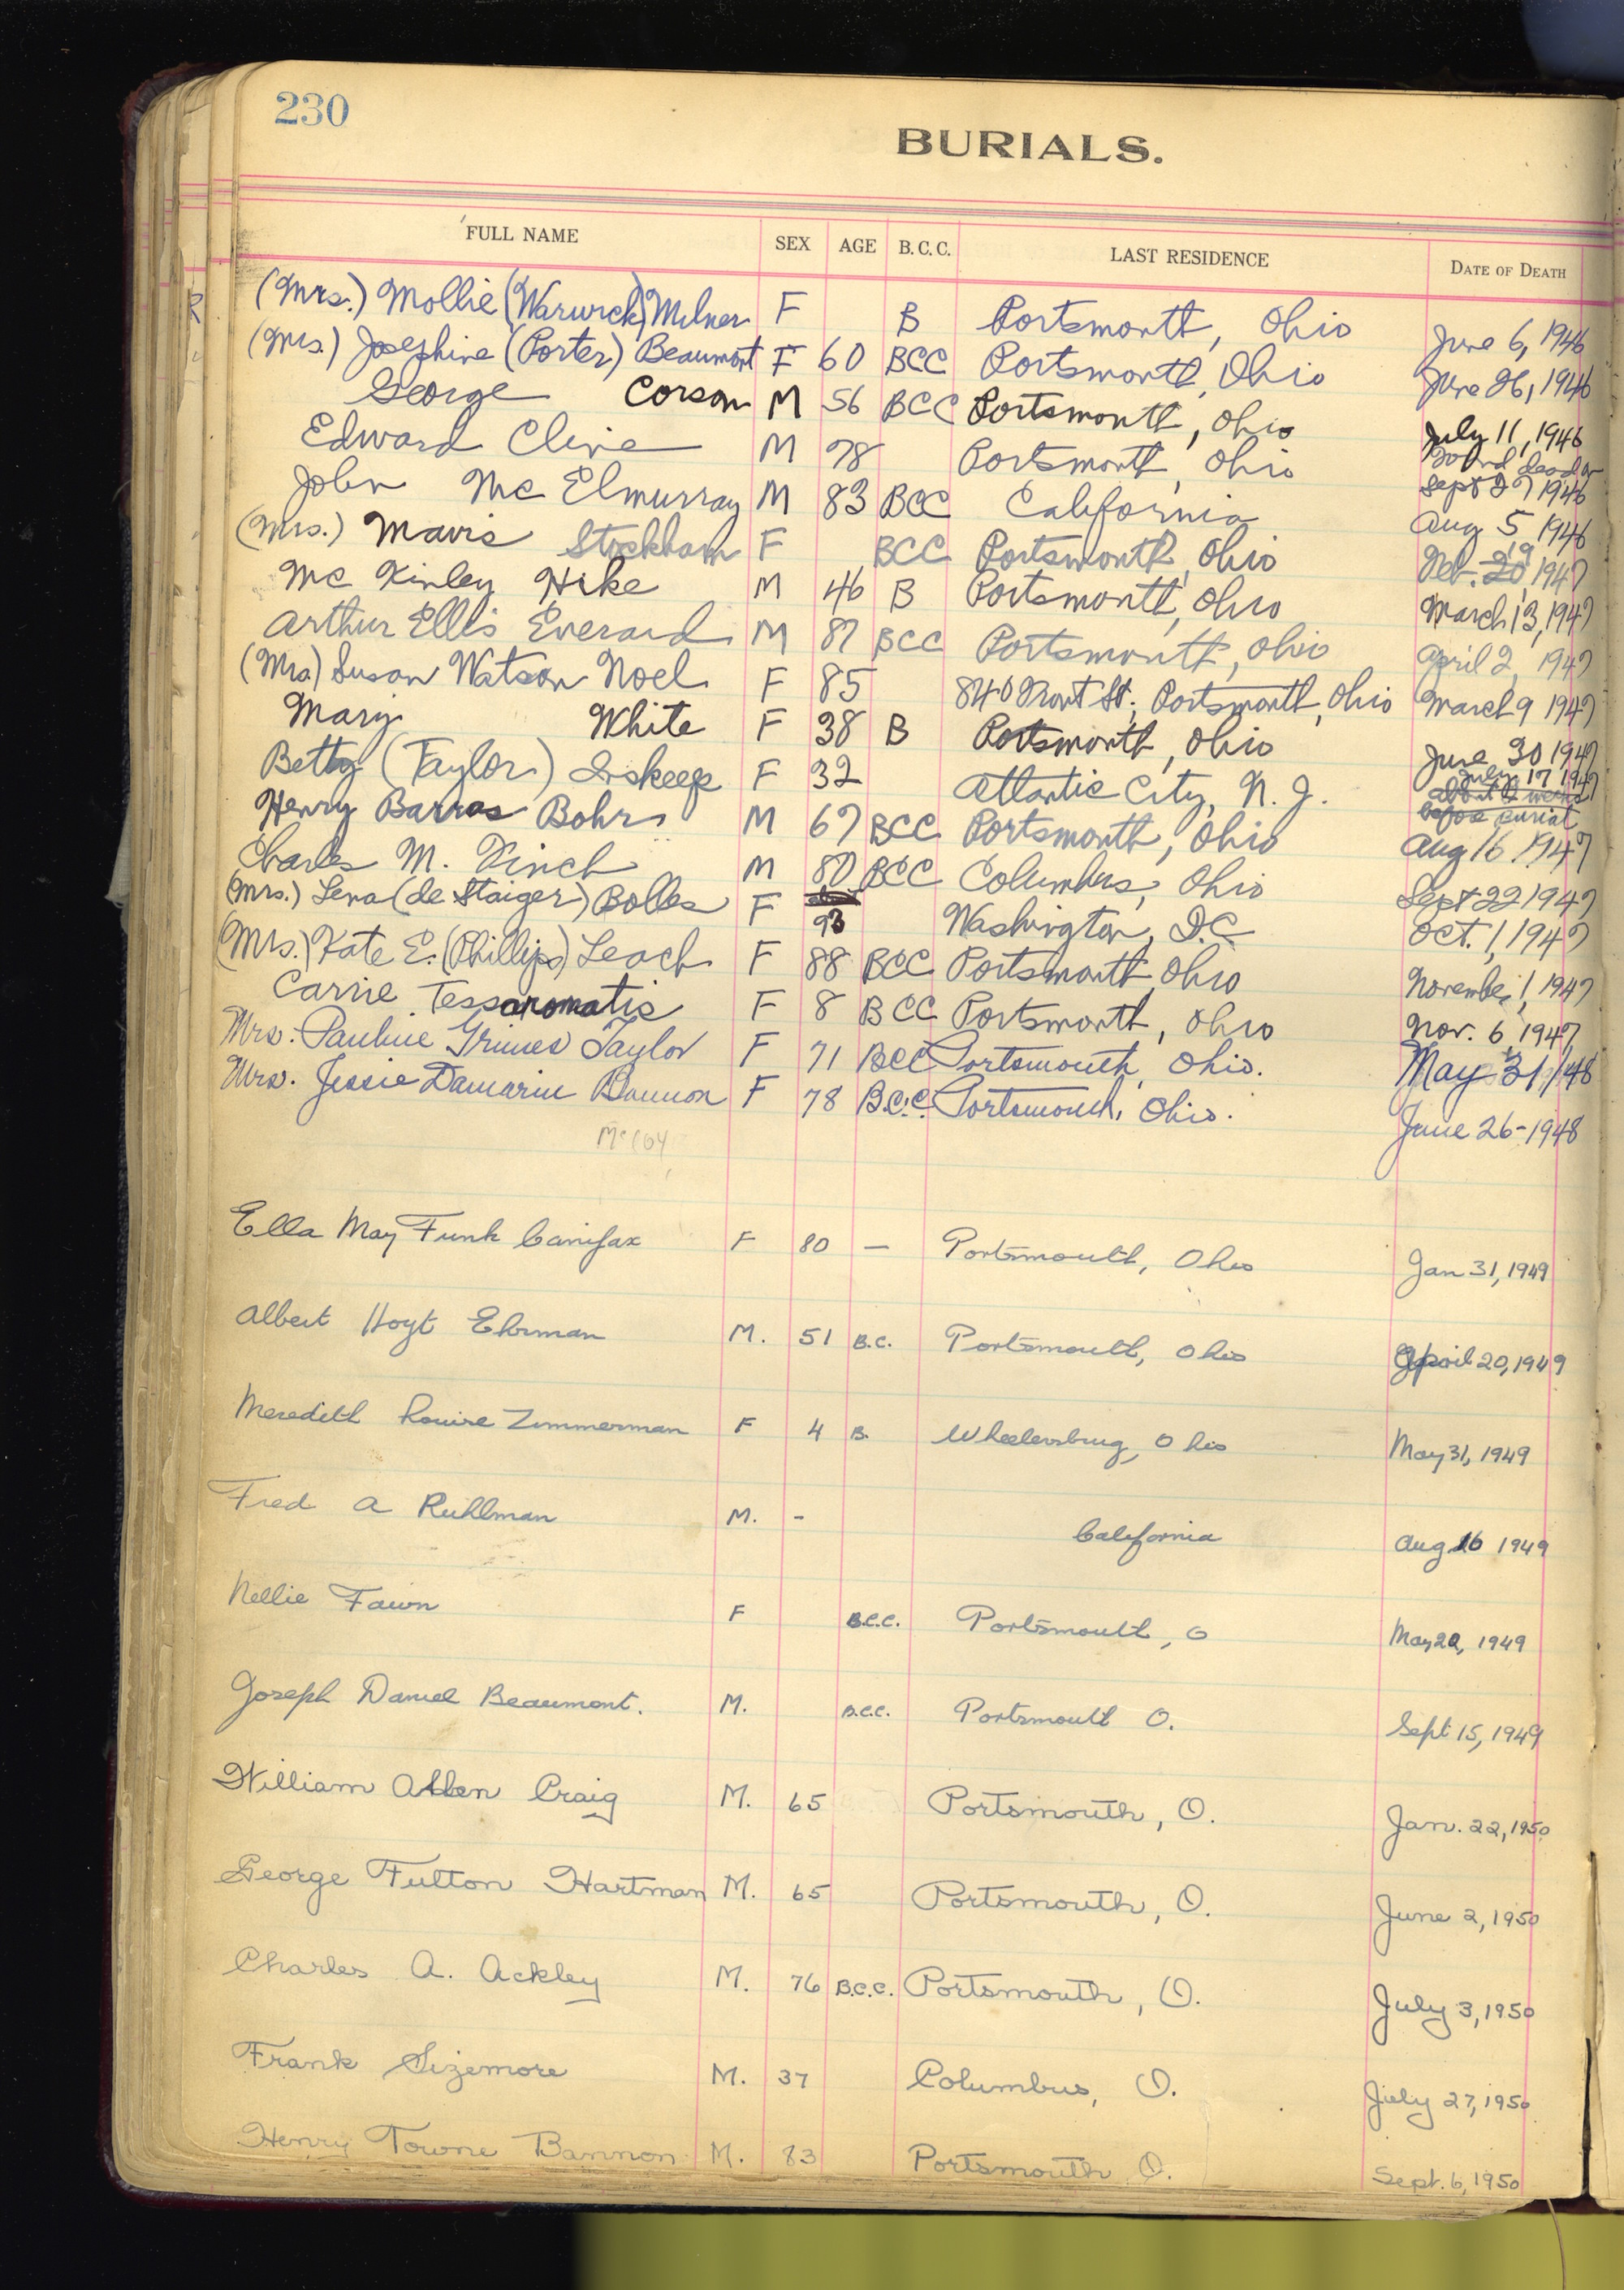 230
BURIALS.
FULL NAME SEX AGE B.C.C. LAST RESIDENCE DATE OF DEATH
(Mrs.) Mollie (Warwick) Milner F B Portsmouth, Ohio June 6, 1946
(Mrs.) Josephine (Porter) Beaumont F 60 BCC Portsmouth, Ohio June 26, 1946
George Corson M 56 BCC Portsmouth, Ohio July 11, 1946
Edward Cline M 78 Portsmouth, Ohio Found dead on Sept 27 1946
John Mc Elmurray M 83 BCC California Aug 5 1946
(Mrs.) Mavis Stockham F BCC Portsmouth, Ohio Feb. 20, 19 1947
Mc Kinley Hike M 46 B Portsmouth, Ohio March 13, 1947
Arthur Ellis Everard M 87 BCC Portsmouth, Ohio April 2, 1947
(Mrs) Susan Watson Noel F 85 840 Front St., Portsmouth, Ohio March 9 1947
Mary White F 38 B Portsmouth, Ohio June 30 1947
Betty (Taylor) Inskeep F 32 Atlantic City, N. J. July 17 1947 before burial
Henry Barras Bohrs M 67 BCC Portsmouth, Ohio Aug 16 1947
Charles M. Finch M 80 BCC Columbus, Ohio Sept 22 1947
(Mrs.) Lena (de Staiger) Bolles F 93 Washington, D.C. Oct. 1, 1947
(Mrs.) Kate E. (Phillips) Leach F 88 BCC Portsmouth, Ohio November 1, 1947
Carrie Tessaromatis F 8 BCC Portsmouth, Ohio Nov. 6, 1947
Mrs. Pauline Grimes Taylor F 71 BCC Portsmouth, Ohio. May 31/48
Mrs. Jessie Damarin Bannon F 78 B.C.C. Portsmouth, Ohio. June 26-1948
McCoy
Ella May Funk Canifax F 80 — Portsmouth, Ohio Jan 31, 1949
Albert Hoyt Ehrman M. 51 B.C. Portsmouth, Ohio April 20, 1949
Meredith Louise Zimmerman F 4 B. Wheelersburg, Ohio May 31, 1949
Fred A Ruhlman M. - California Aug 16 1949
Nellie Fawn F B.C.C. Portsmouth, O May 20, 1949
Joseph Daniel Beaumont. M. B.C.C. Portsmouth O. Sept 15, 1949
William Allen Craig M. 65 Portsmouth, O. Jan. 22, 1950
George Fulton Hartman M. 65 Portsmouth, O. June 2, 1950
Charles A. Ackley M. 76 B.C.C. Portsmouth, O. July 3, 1950
Frank Sizemore M. 37 Columbus, O. July 27, 1950
Henry Towne Bannon M. 83 Portsmouth O. Sept. 6, 1950